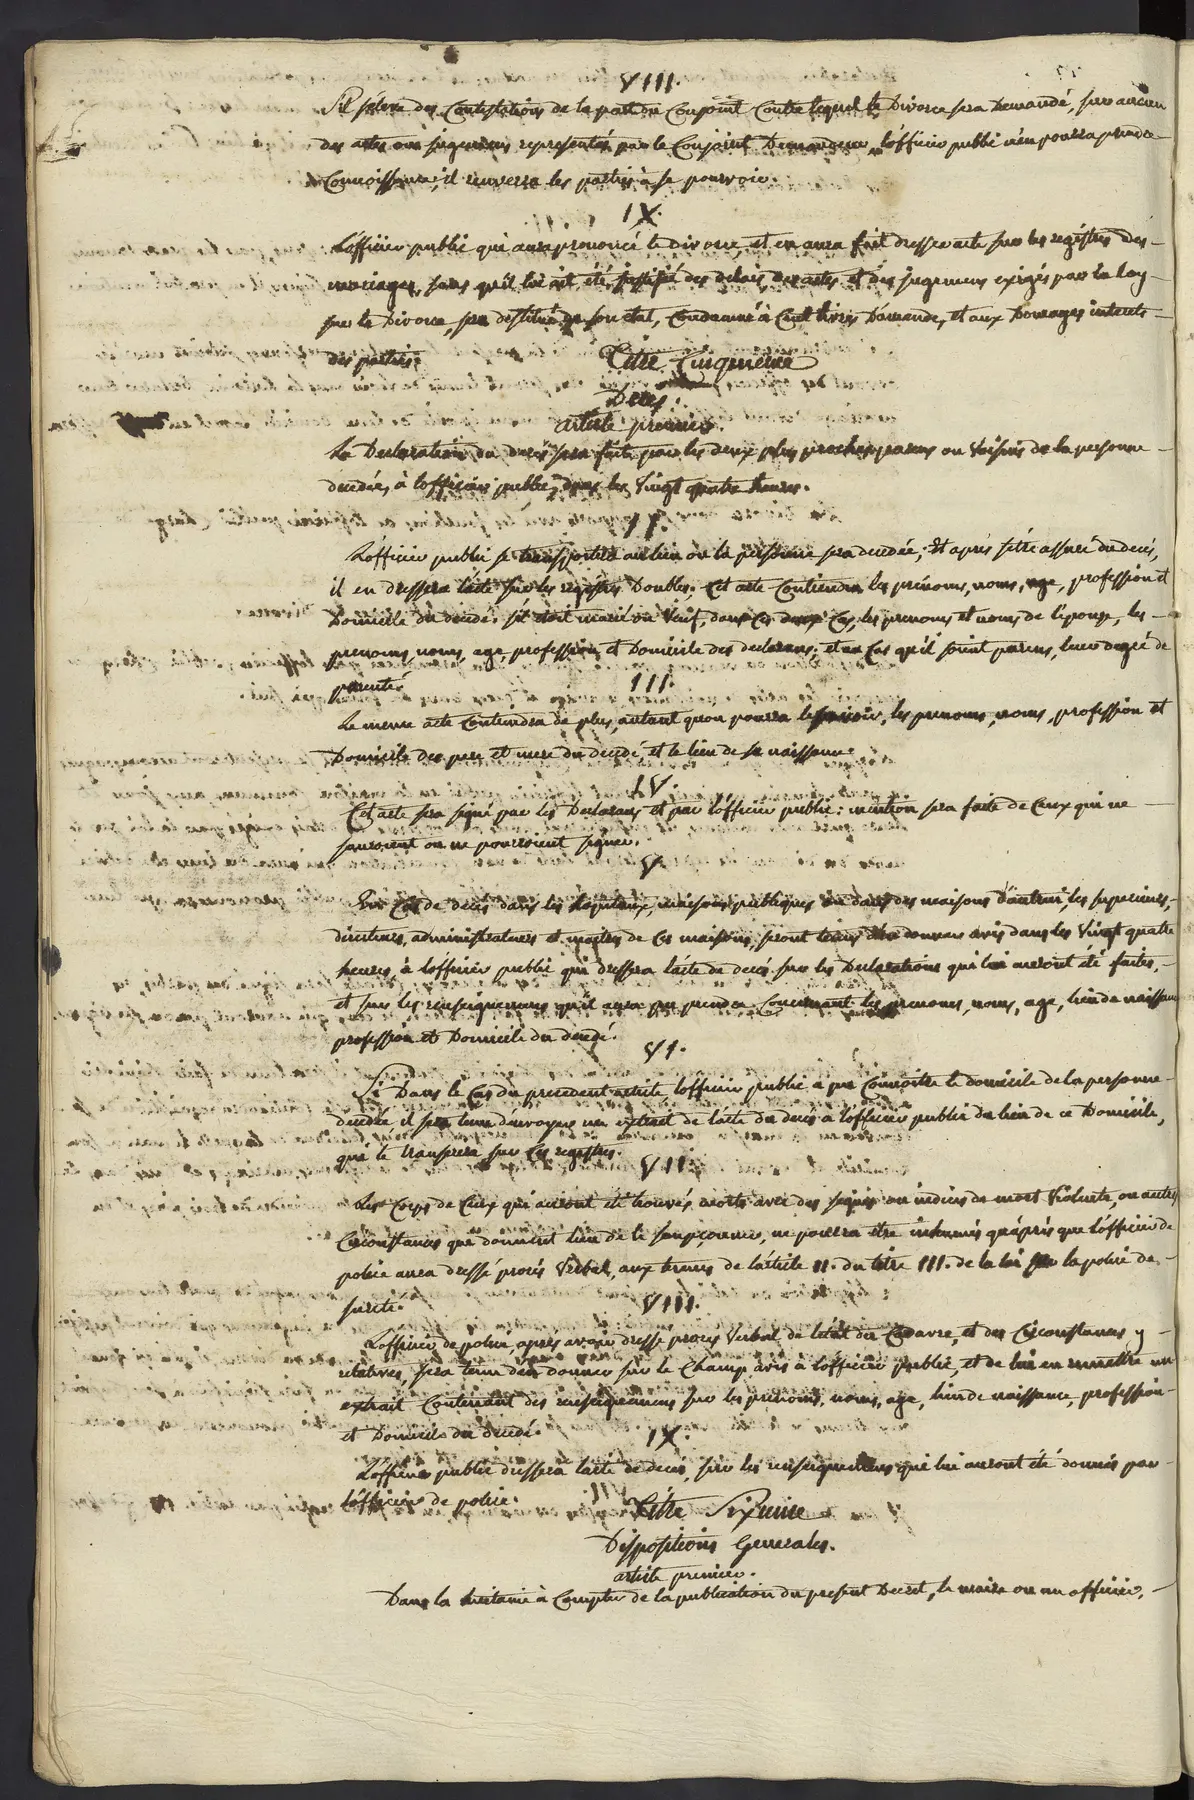 VIII.
S'il s'éleve des Contestations de la part du Conjoint Contre lequel le Divorce sera Demandé, sur aucun
des actes ou jugemens représentés par le Conjoint Demandeur, l'officier public n'en pourra prendre
Connoissance; il renverra les parties à se pourvoir.
IX.
L'officier public qui aura prononcé le divorce, et en aura fait dresser acte sur les registres des
mariages, sans qu'il lui ait été justifié des delais, des actes et des jugemens exigés par la loy
sur le Divorce, sera destitué de son état, Condamné à Cent livres D'amende, et aux Domages interets
des parties.
Titre Cinquieme
Decès.
article premier.
La Declaration du decès sera faite par les deux plus proches parens ou Voisins de la personne
decedée, à l'officier public, dans les Vingt quatre heures.
II.
L'officier public se transportera au lieu où la personne sera decedée; et après s'être assuré du decès,
il en dressera l'acte sur les registres Doubles. Cet acte Contiendra les prénoms, noms, age, profession et
Domicile du decedé. s'il étoit marié ou Veuf, dans ces deux Cas, les prenoms et noms de l'épouse, les
prenoms, noms, age, profession et Domicile des declarans; et au Cas qu'il soient parens, leur degré de
parenté.
III.
Le meme acte Contiendra de plus, autant qu'on pourra le savoir, les prenoms, noms, profession et
Domicile des pere et mere du decedé et le lieu de sa naissance.
IV.
Cet acte sera signé par les Declarans et par l'officier public: mention sera faite de Ceux qui ne
sauroient ou ne pourroient signer.
V
En Cas de decès dans les hopitaux, maisons publiques ou dans des maisons D'autrui, les superieurs,
directeurs, administrateurs et maitres de Ces maisons, seront tenus d'en donner avis dans les Vingt quatre
heures, à l'officier public qui dressera l'acte de decès sur les Declarations qui lui auront été faites,
et sur les renseignemens qu'il aura pu prendre Concernant les prenoms, noms, age, lieu de naissance
profession et Domicile du decedé.
VI.
Si Dans le Cas du precedent article, l'officier public a pu Connoitre le domicile de la personne
decedée, il sera tenu d'envoyer un extrait de l'acte du decès à l'officier public du lieu de ce Domicile,
qui le transcrira sur Ces registres.
VII.
Les Corps de Ceux qui auront été trouvés morts avec des signes ou indices de mort Violente, ou autres
Circonstances qui donnent lieu de le soupçonner, ne pourra etre inhumés qu'après que l'officier de
police aura dressé procès Verbal, aux termes de l'article II. du titre III. de la loi sur la police de
sureté.
VIII.
L'officier de police, après avoir dressé procès Verbal de l'état du Cadavre, et des Circonstances y
relatives, sera tenu d'en donner sur le Champ avis à l'officier public, et de lui en remettre un
extrait Contenant des renseignemens sur les prenoms, noms, age, lieu de naissance, profession
et Domicile du decedé.
IX.
L'officier public dressera l'acte de decès, sur les renseignemens qui lui auront été donnés par
l'officier de police.
Titre Sixieme
Dispositions Generales.
article premier.
Dans la huitaine à Compter de la publication du present Decret, le maire ou un officier,